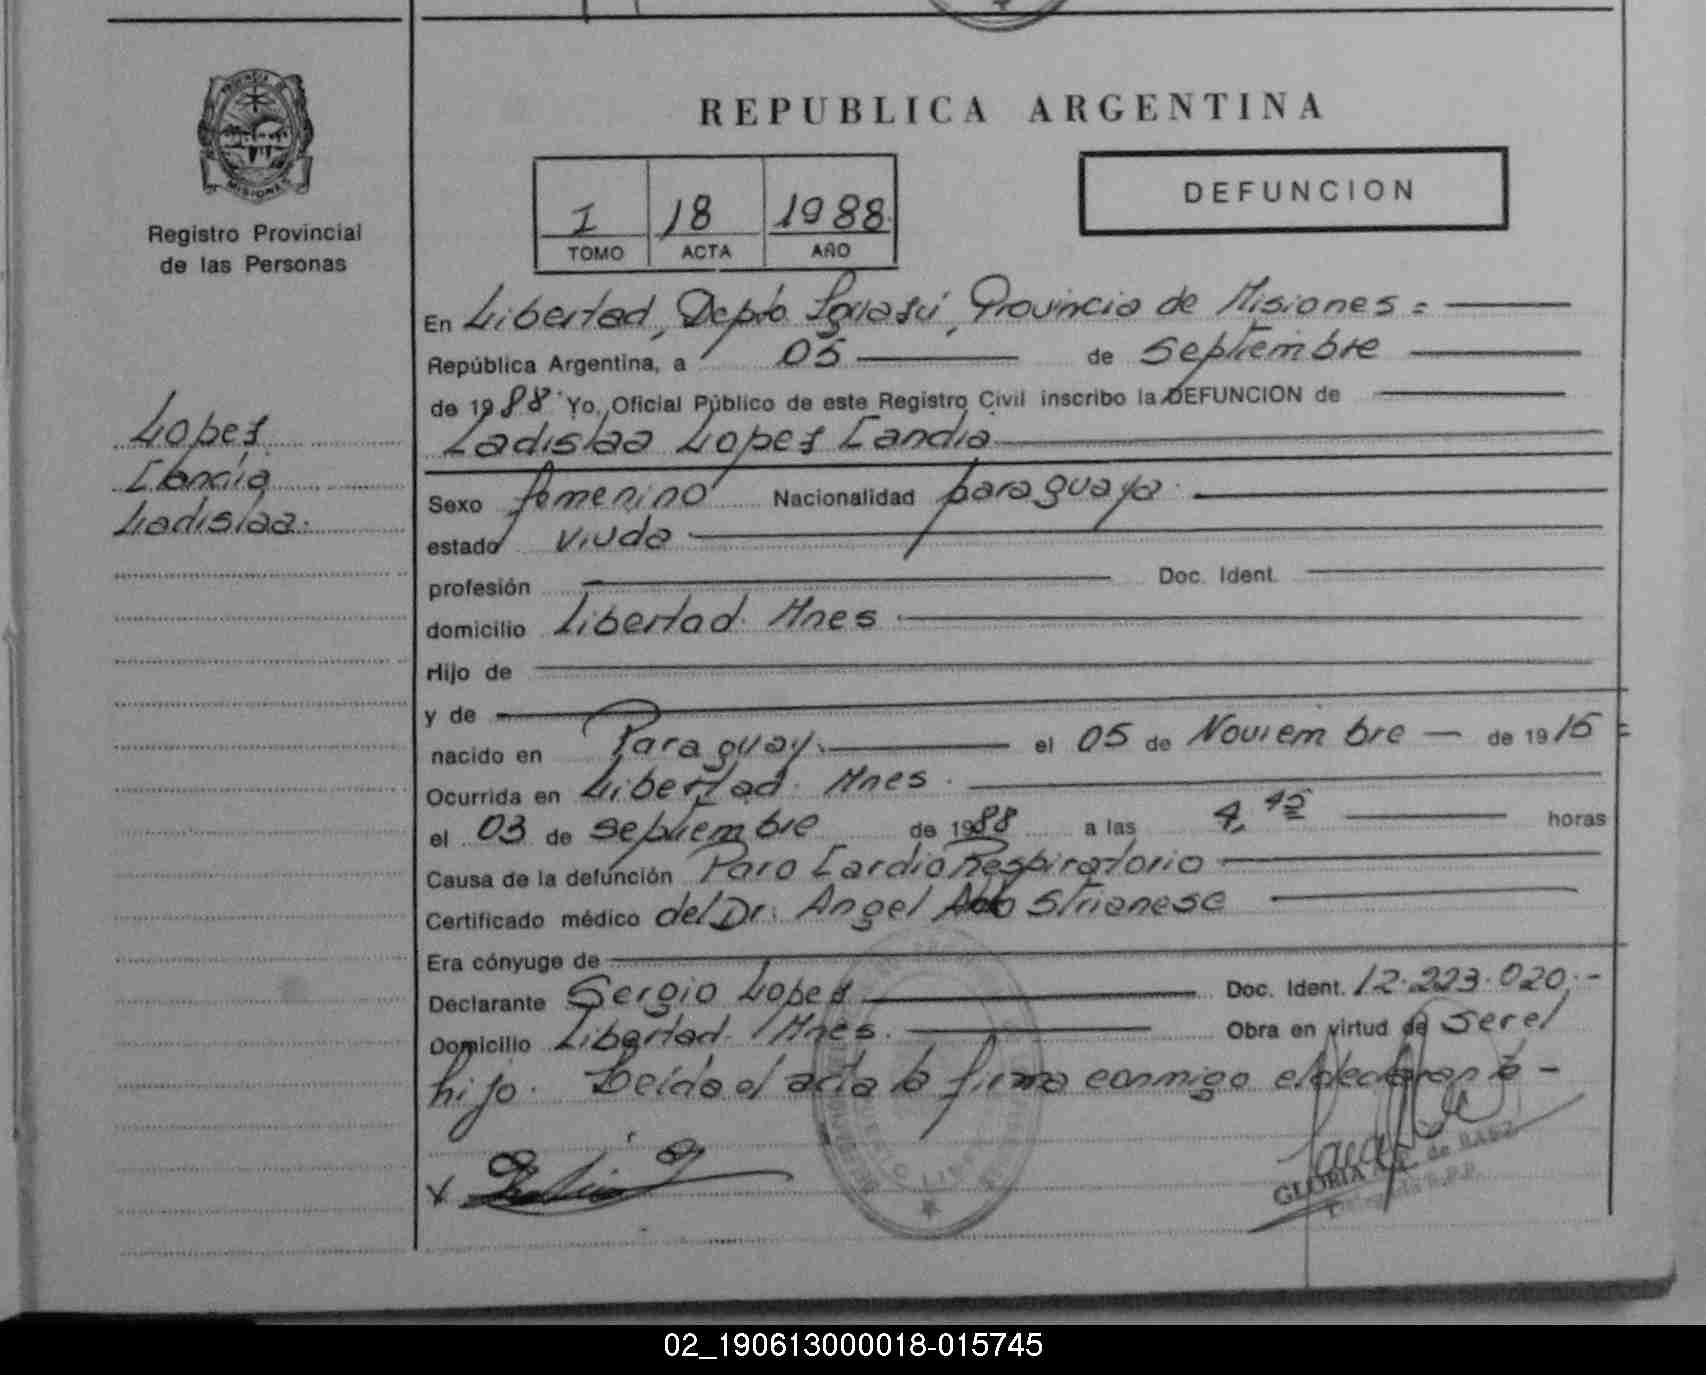 REPUBLICA ARGENTINA
PROVINCIA DE
MISIONES
Registro Provincial
de las Personas
I 18 1988
TOMO ACTA AÑO
DEFUNCION
En Libertad, Depto Iguasú, Provincia de Misiones =
República Argentina, a 05 de Septiembre
de 1988 Yo, Oficial Público de este Registro Civil inscribo la DEFUNCION de
Ladislaa Lopes Candia
Lopes
Candia
Ladislaa.
Sexo femenino Nacionalidad paraguaya.
estado viuda
profesión Doc. Ident.
domicilio Libertad. Mnes
Hijo de
y de
nacido en Paraguay. el 05 de Noviembre de 1915
Ocurrida en Libertad. Mnes.
el 03 de septiembre de 1988 a las 4,45 horas
Causa de la defunción Paro CardioRespiratorio
Certificado médico del Dr. Angel Strianese
Era cónyuge de
Declarante Sergio Lopes Doc. Ident. 12.223.020.-
Domicilio Libertad. Mnes. Obra en virtud de Ser el
hijo. Leida el acta la firma conmigo el declarante -
GLORIA de BAEZ
R.P.P.
02_190613000018-015745